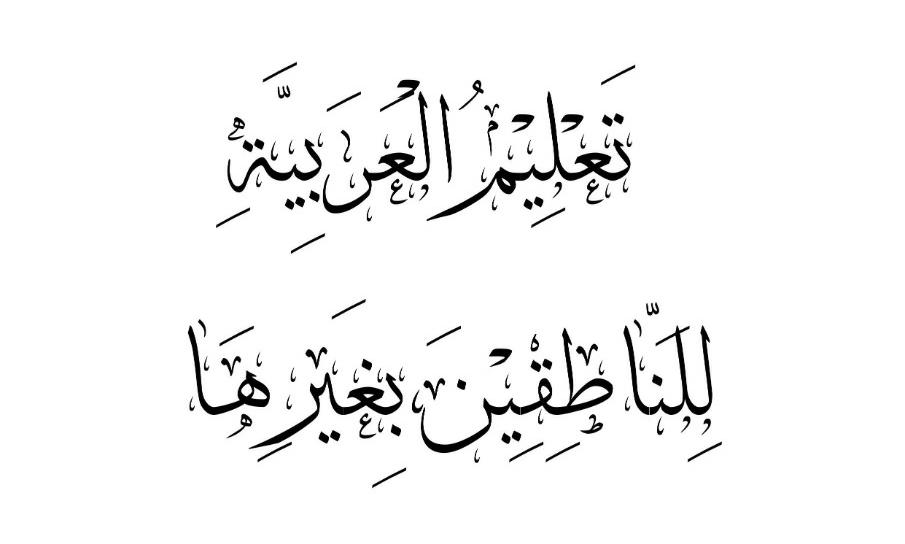 تَعْلِيْمُ الْعَرَبِيَّةِ
لِلنَّاطِقِيْنَ بِغَيَرِهَا